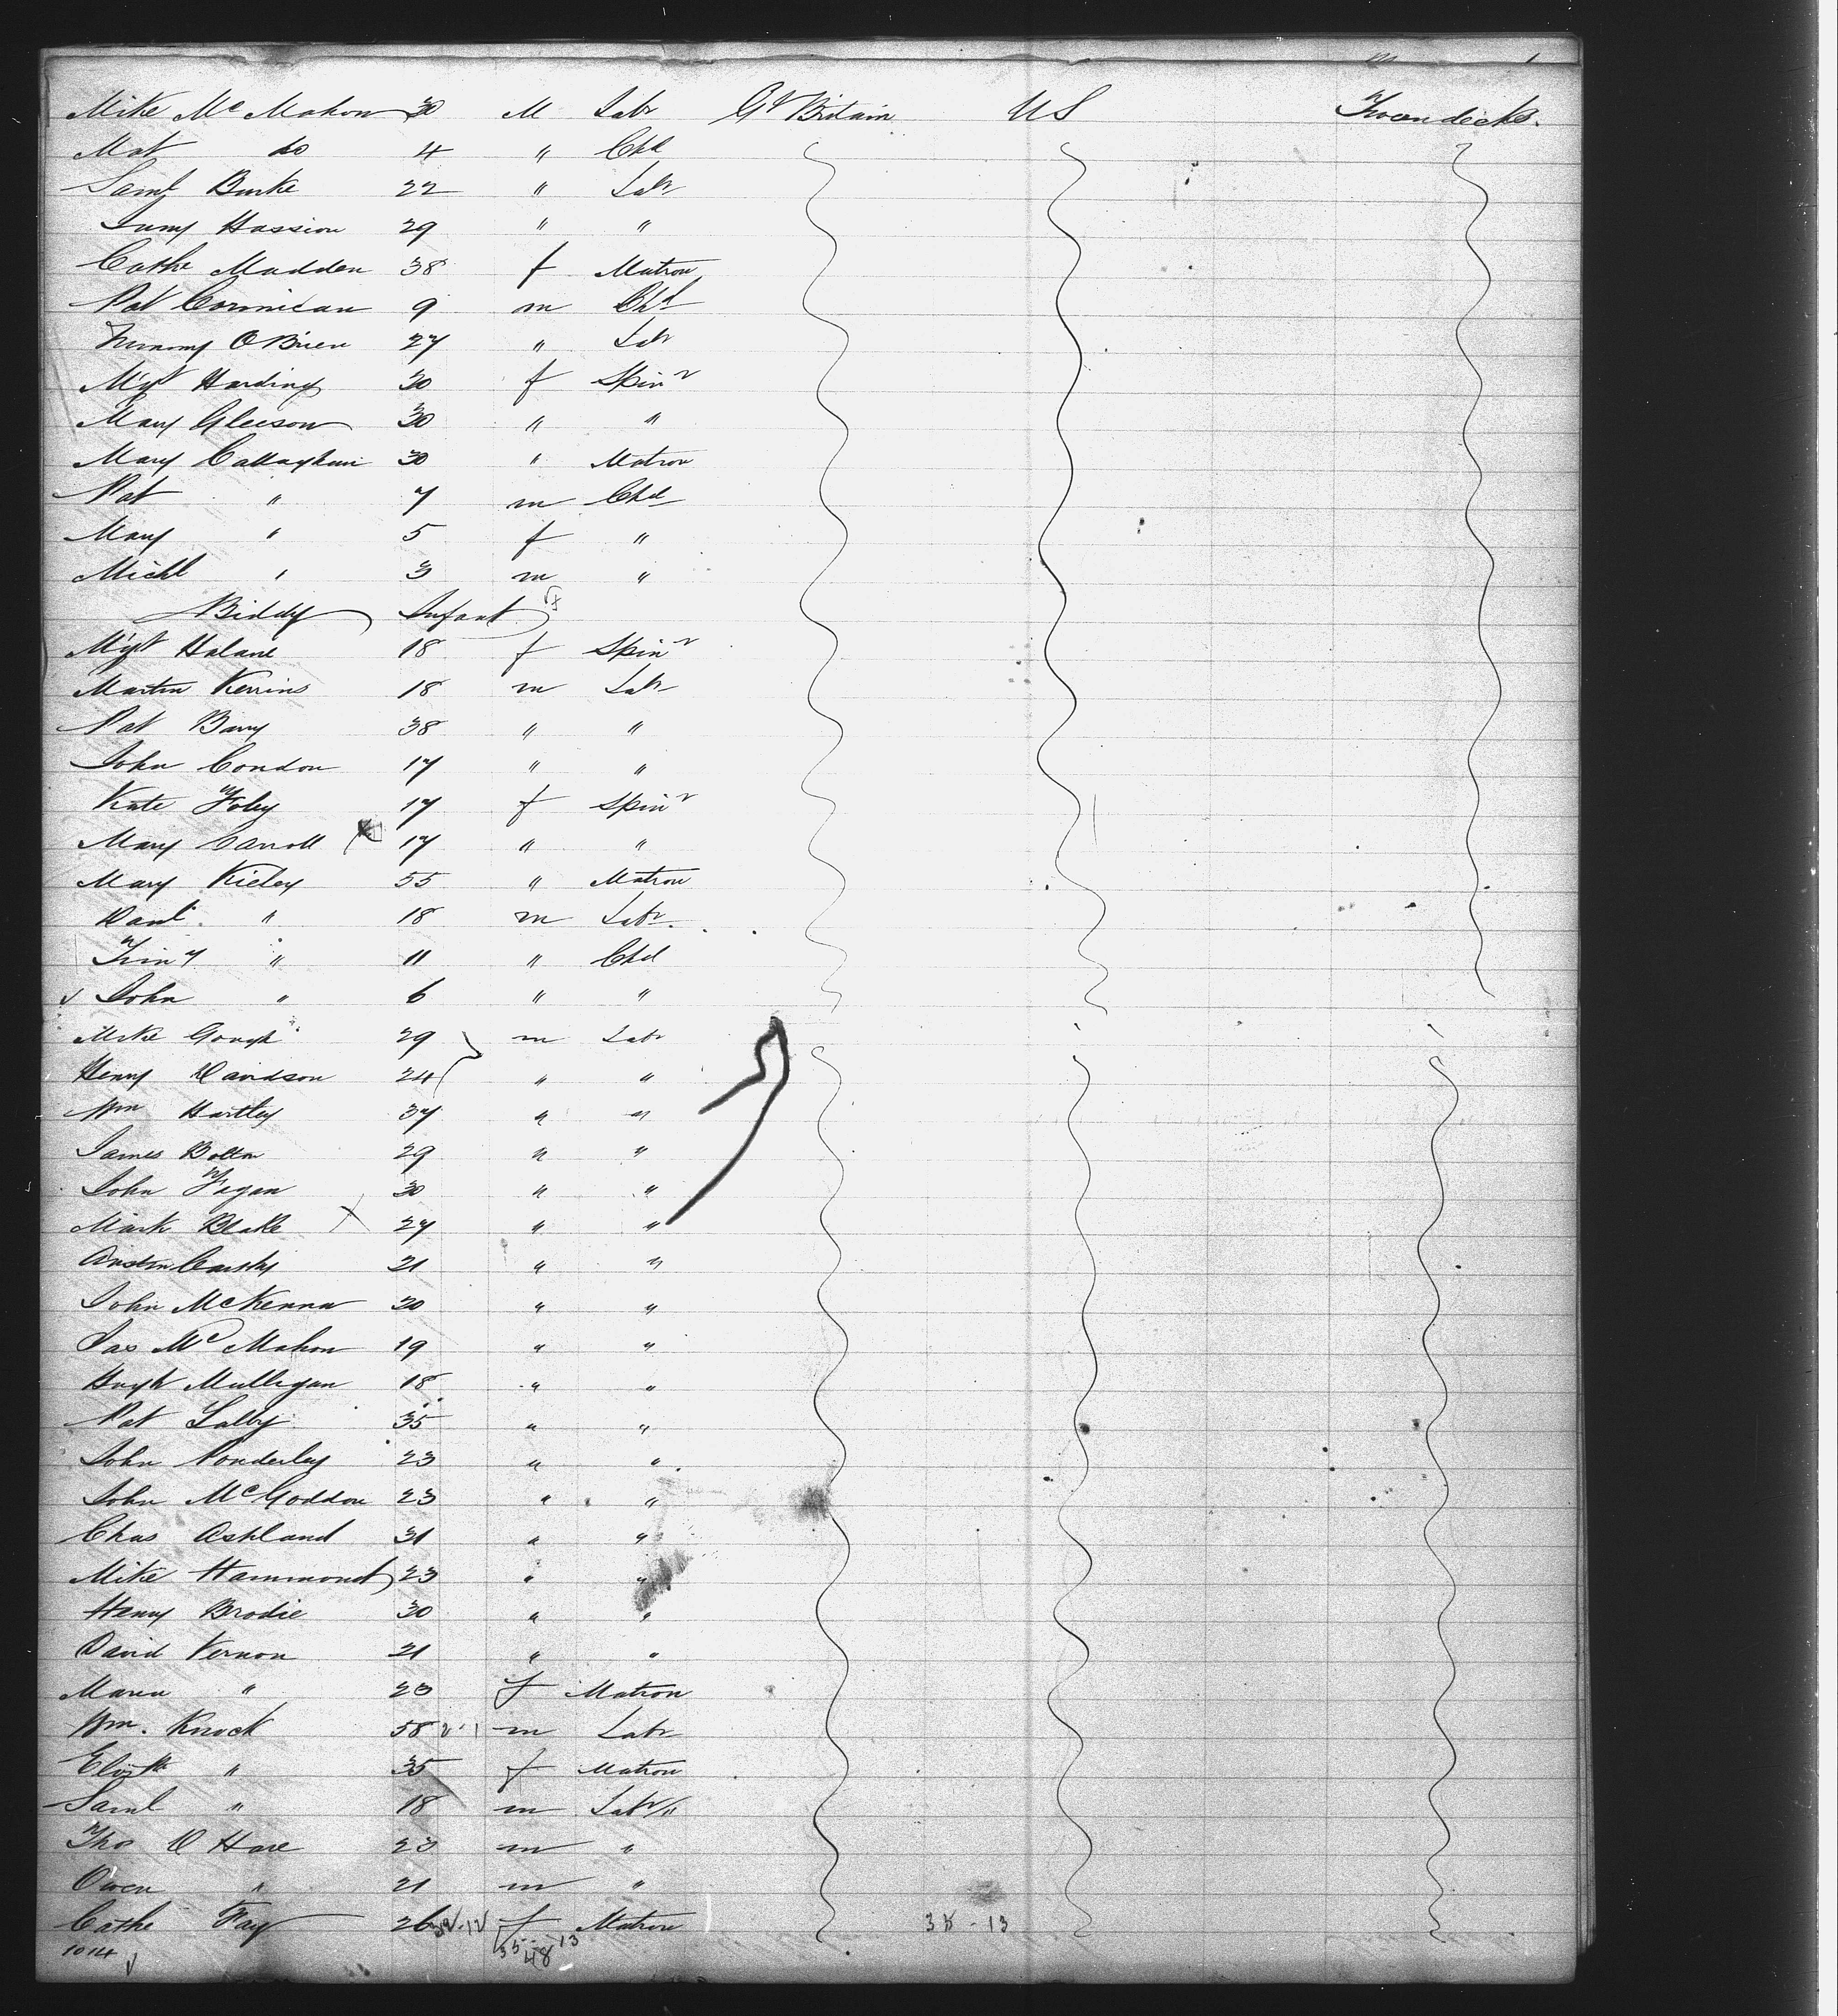 Mike McMahon 30 M Labr Gt Britain US Tween decks.
Mat do 4 " Chd
Saml Burke 22 " Labr
Hassion 29 " "
Cathe Madden 38 f Matron
Pat Cormican 9 m Chd
O'Brien 27 " Labr
Mgt Harding 30 f Spinr
Mary Gleeson 30 " "
Mary Callaghan 30 " Matron
Pat " 7 m Chd
Mary " 5 f "
Michl " 3 m "
Biddy Infant
Mgt Halane 18 f Spinr
Martin Kerrins 18 m Labr
Pat Barry 38 " "
John Condon 17 " "
Kate Foley 17 f Spinr
Mary Carroll 17 " "
Mary Kieley 55 " Matron
Danl " 18 m Labr
Timy " 11 " Chd
John " 6 " "
Mike Gough 29 m Labr
Henry Davidson 24 " "
Wm Hartley 37 " "
James Bolton 29 " "
John Fagan 30 " "
Mark Blake 27 " "
Austin 21 " "
John McKenna 20 " "
Jas McMahon 19 " "
Hugh Mulligan 18 " "
Pat Lally 35 " "
John Ponderley 23 " "
John McGoddon 23 " "
Chas Ashland 31 " "
Mike Hammond 23 " "
Henry Brodie 30 " "
David Vernon 21 " "
Maria " 20 f Matron
Wm. Knock 58 m Labr
Elizth " 35 f Matron
Saml " 18 m Labr "
Tho O Hare 23 m "
Owen " 21 m "
Cathe Fay 26 f Matron 35-13
1014 35 13
48